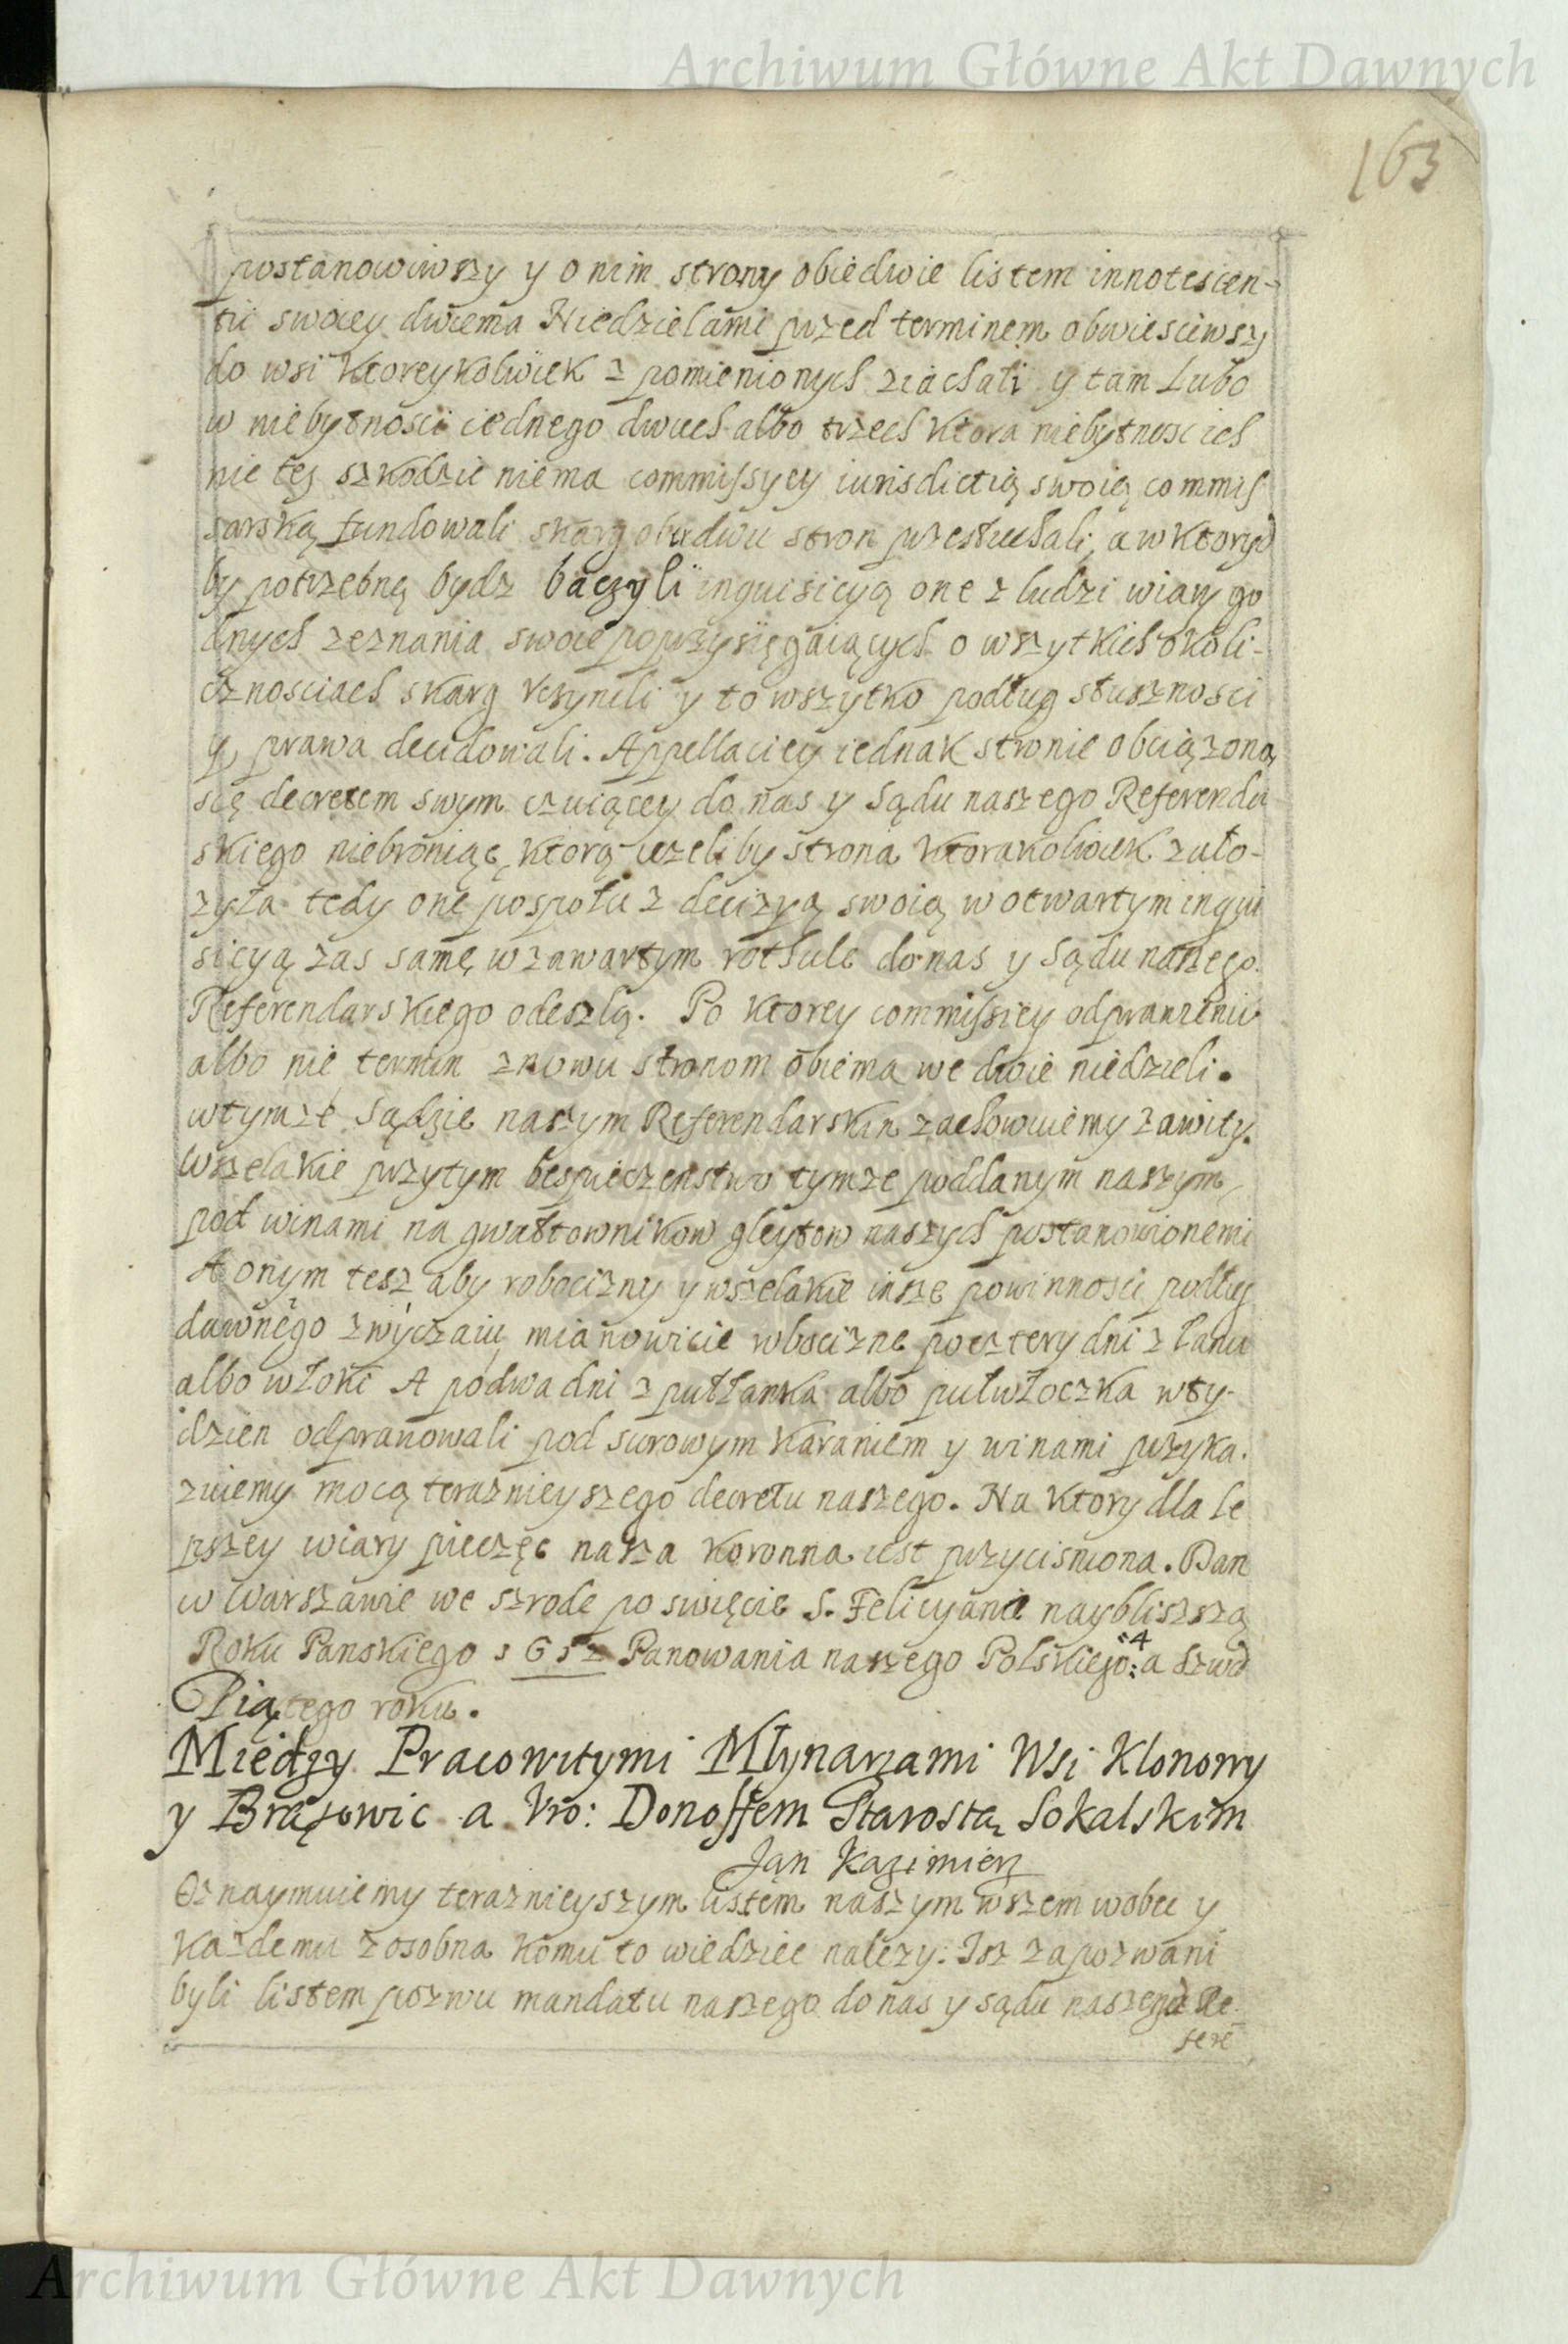 Archiwum Główne Akt Dawnych
163
postanowiwszy y o nim strony obiedwie listem innotescen-
tii swoiey dwiema Niedzielami przed terminem obwiesciwszy
do wsi ktoreykolwiek z pomienionych ziachali y tam Lubo
w niebytnosci iednego dwuch albo trzech ktora niebytnosc ich
nic tey szkodzic niema commissyey iurisdictią swoią commis
sarską fundowali skarg obudwu stron przesłuchali, a w ktorych
by potrzebną bydz baczyli inquisicyą one z ludzi wiary go
dnych zeznania swoie poprzysięgaiących o wszytkich okoli-
cznosciach skarg vczynili y to wszytko podług słusznosci
y prawa decidowali. Appellaciey iednak stronie obciążoną
się decretem swym czuiącey do nas y Sądu naszego Referenda
skiego niebroniąc, ktorą iezeliby strona ktorakolwiek zało-
zyła tedy onę pospołu z decizyą swoią w otwartym inqui
sicyą zas samę w zawartym rothule do nas y Sądu naszego
Referendarskiego odeszlą. Po ktorey commissiey odprawieniu
albo nie termin znowu stronom obiema we dwie niedzieli.
w tymze Sądzie naszym Referendarskim zachowuiemy zawity.
Wszelakie przytym bespieczenstwo tymze poddanym naszym
pod winami na gwałtownikow gleytow naszych postanowionemi
A onym tesz aby robocizny y wszelakie insze powinnosci podług
dawnego zwyczaiu mianowicie robociznę po cztery dni z łanu
albo włoki A po dwa dni z pułłanka albo pułwłoczka w ty-
dzien odprawowali pod surowym karaniem y winami przyka-
zuiemy mocą teraznieyszego decretu naszego. Na ktory dla le
pszey wiary pieczęc nasza koronna iest przycisniona. Dan
w Warszawie we szrode po swięcie S. Felicyana naybliszszą
Roku Panskiego 1652 Panowania naszego Polskiego: 4 a Szwed
Piątego roku.
Między Pracowitymi Młynarzami Wsi Klonowy
y Brąszowic a Vro: Donoffem Starostą Sokalskim
Jan Kazimierz
Oznaymuiemy teraznieyszym listem naszym wszem wobec y
każdemu zosobna komu to wiedziec nalezy: Isz zapozwani
byli listem pozwu mandatu naszego do nas y sądu naszego Re-
fere
Archiwum Główne Akt Dawnych